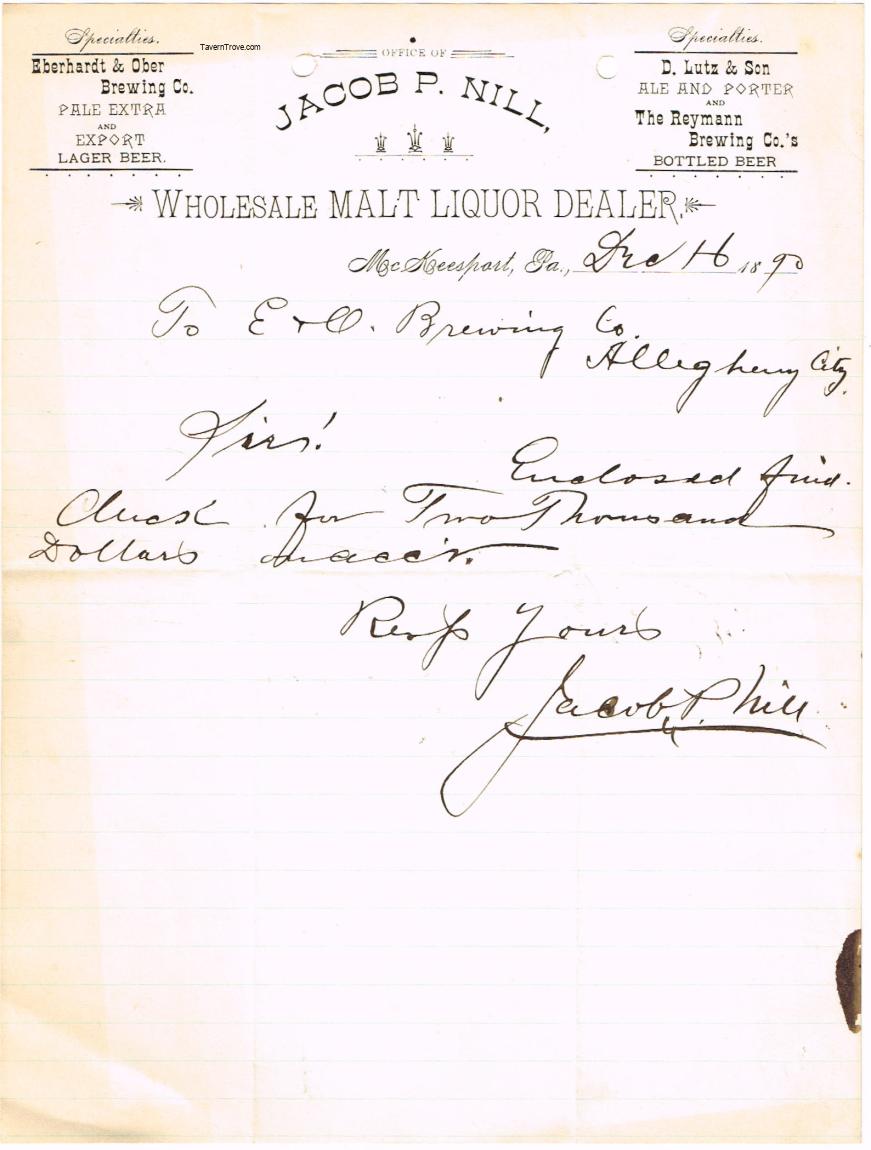 TavernTrove.com
Specialties.
Eberhardt & Ober
Brewing Co.
PALE EXTRA
AND
EXPORT
LAGER BEER.
OFFICE OF
JACOB P. NILL,
Specialties.
D. Lutz & Son
ALE AND PORTER
AND
The Reymann
Brewing Co.'s
BOTTLED BEER
WHOLESALE MALT LIQUOR DEALER.
McKeesport, Pa., Dec 16 1890
To E & O. Brewing Co.
Allegheny City.
Sirs!
Enclosed find.
Check for Two Thousand
Dollars on acct.
Resp Yours
Jacob P. Nill